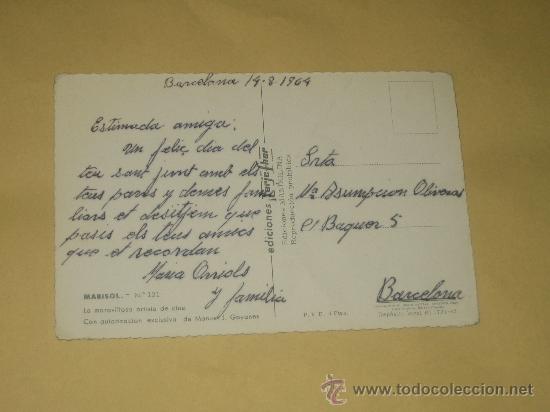 Barcelona 14-8-1964
Estimada amiga:
Un feliç dia del
teu sant junt amb els
teus pares y demes fam
liars et desitjem que
pasis els teus amics
que et recordan
Maria Orriols
y familia
MARISOL. - N.º 121
La maravillosa artista de cine
Con autorización exclusiva de Manuel J. Goyanes
ediciones
Reproducción prohibida
Srta
Mª Asumpcion Oliveras
c/ Baguer 5
Barcelona
P. V. P. 4 Ptas.
todocoleccion
www.todocoleccion.net